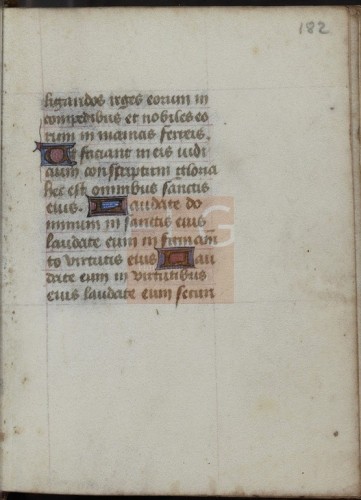 182
ligandos reges eorum in
compedibus et nobiles eo
rum in manicis ferreis.
Ut faciant in eis iudi
cium conscriptum gloria
hec est omnibus sanctis
eius. Laudate do
minum in sanctis eius
laudate eum in firmam
to virtutis eius Lau
date eum in virtutibus
eius laudate eum secun